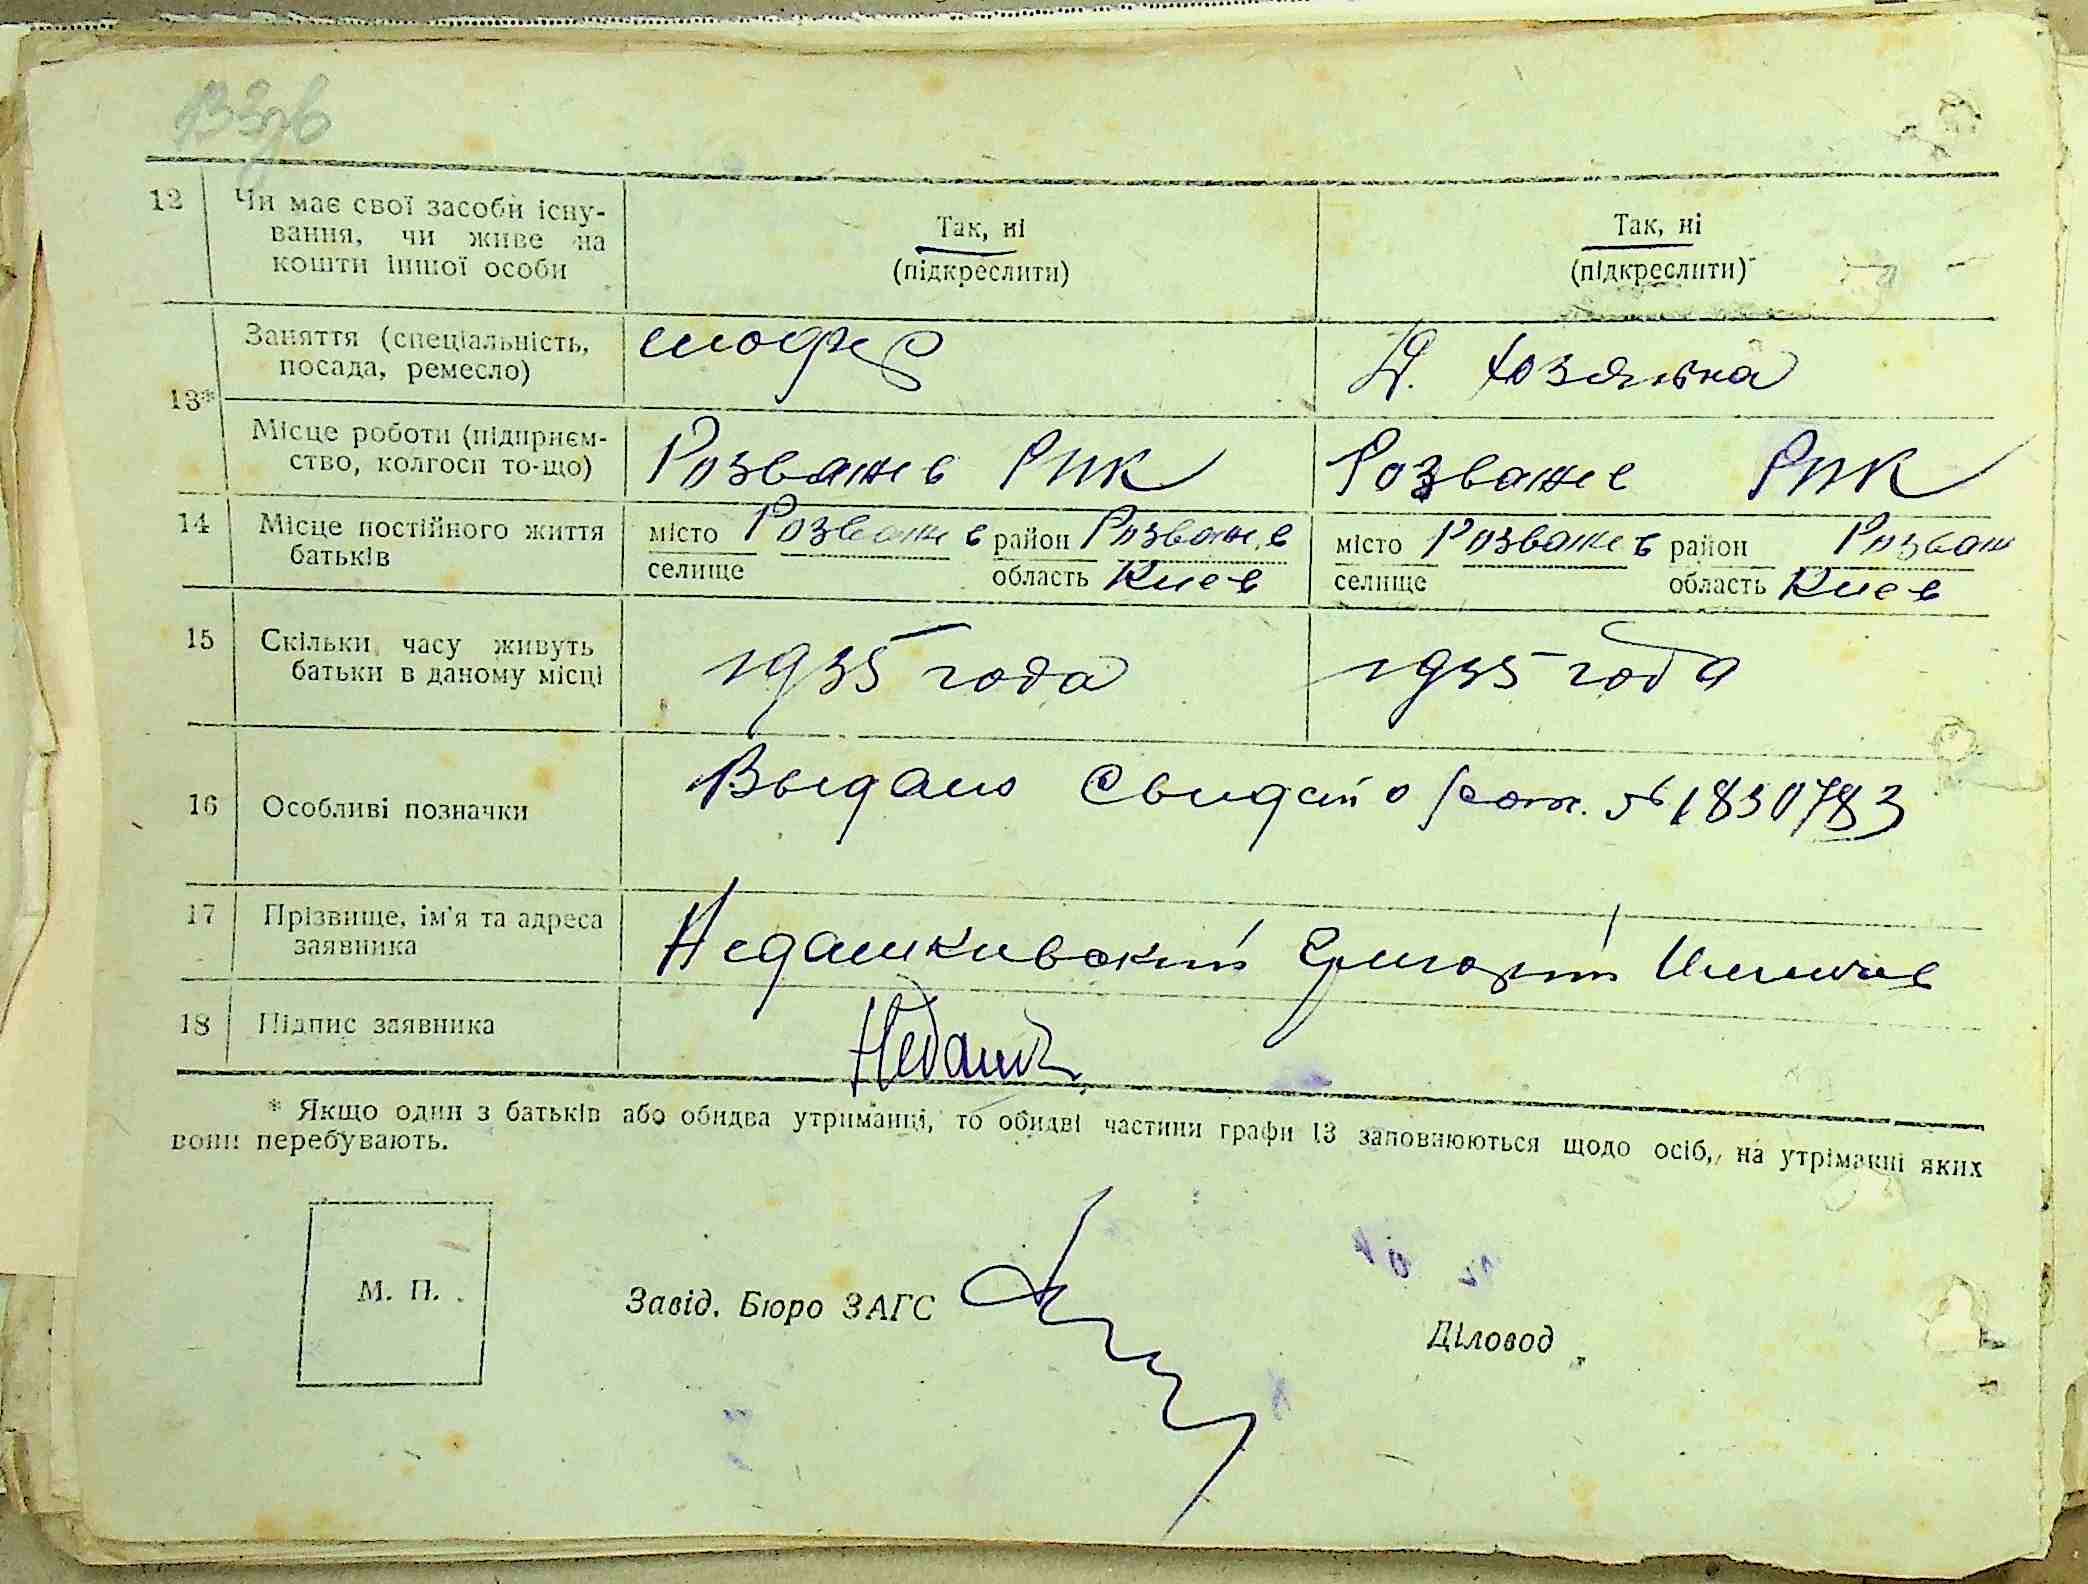 12 Чи має свої засоби існу-
вання, чи живе на
кошти іншої особи
Так, ні
(підкреслити)
Так, ні
(підкреслити)
13*
Заняття (спеціальність,
посада, ремесло)
шофер
Д. Хозяйка
Місце роботи (підприєм-
ство, колгосп то-що)
Розважев РИК
Розваже РИК
14 Місце постійного життя
батьків
місто Розважев район Розваже
селище область Киев
місто Розважев район Розваж
селище область Киев
15 Скільки часу живуть
батьки в даному місці
1935 года
1935 года
16 Особливі позначки
Выдано Свидет о рож. № 1830783
17 Прізвище, ім'я та адреса
заявника
Недашкивский Григорий
18 Підпис заявника
Недаш
* Якщо один з батьків або обидва утриманці, то обидві частини графи 13 заповнюються щодо осіб, на утріманні яких
вони перебувають.
М. П.
Завід. Бюро ЗАГС
Діловод